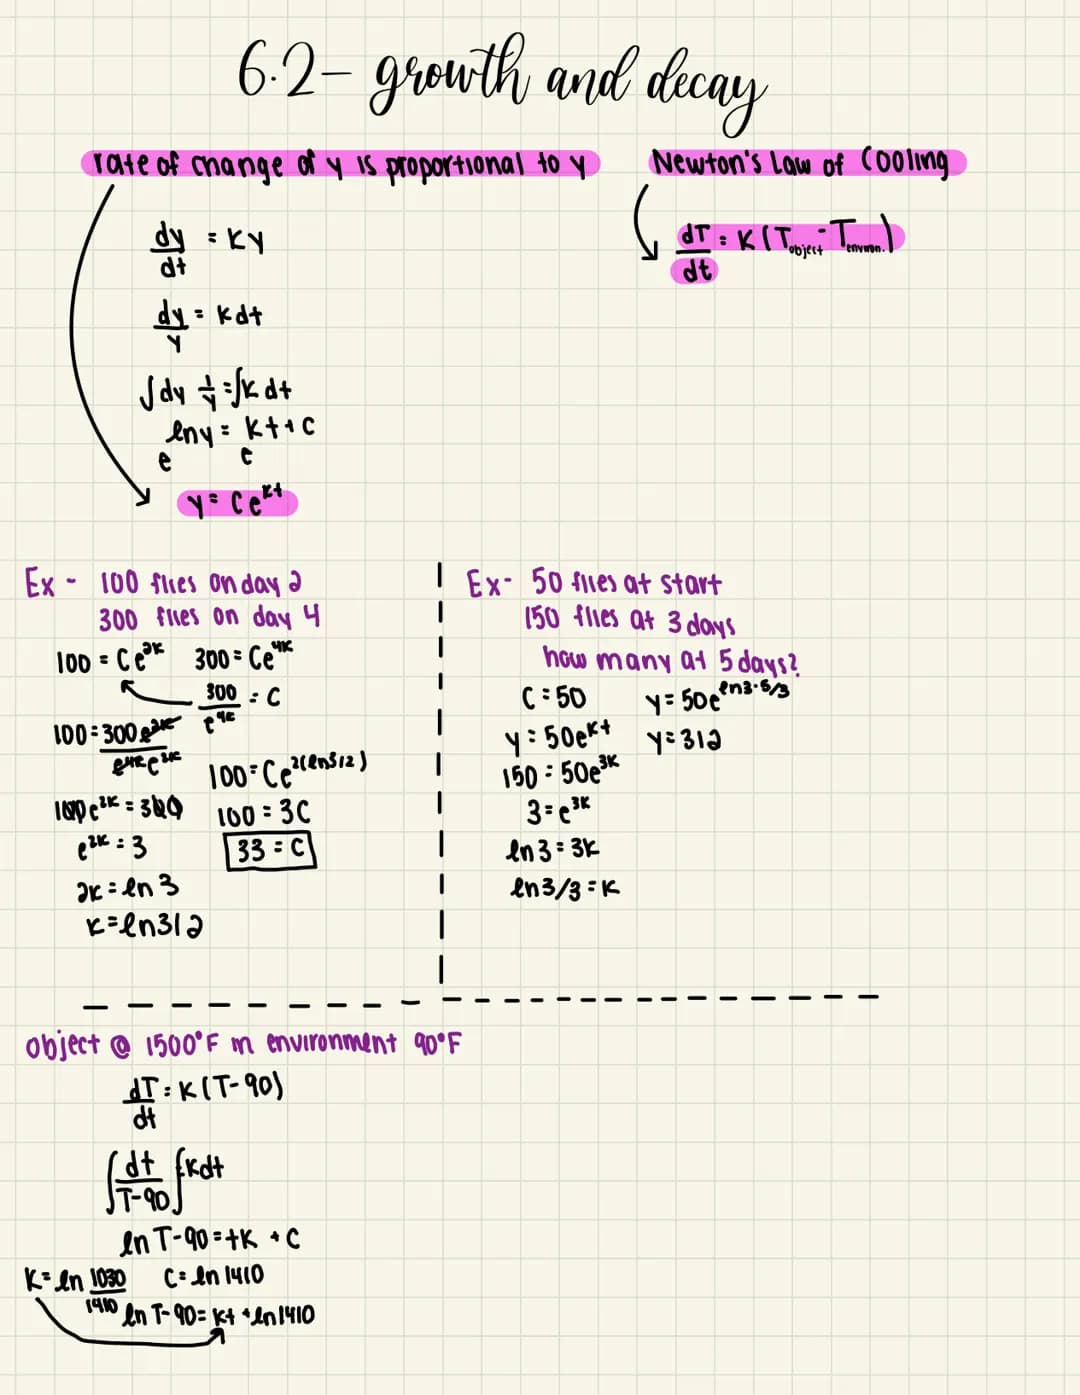 6.2 - growth and decay
rate of change of y is proportional to y
dy/dt = Ky
dy/y = Kdt
∫dy 1/y = ∫K dt
lny = Kt + C
e e
y = Ce^Kt
Newton's Law of Cooling
dT/dt = K(T_object - T_environ.)
Ex - 100 flies on day 2
300 flies on day 4
100 = Ce^2K 300 = Ce^4K
300/e^4K = C
100 = 300e^2K/e^4K e^2K
100e^2K = 300
e^2K = 3
2K = ln 3
K = ln3/2
100 = Ce^2(ln3/2)
100 = 3C
33 = C
Ex - 50 flies at start
150 flies at 3 days
how many at 5 days?
C = 50
y = 50e^Kt
150 = 50e^3K
3 = e^3K
ln 3 = 3K
ln3/3 = K
y = 50e^ln3·5/3
y = 312
object @ 1500°F in environment 90°F
dT/dt = K(T-90)
∫dt/T-90 = ∫Kdt
ln T-90 = tK + C
K = ln 1030/1410 C = ln 1410
ln T-90 = Kt + ln1410